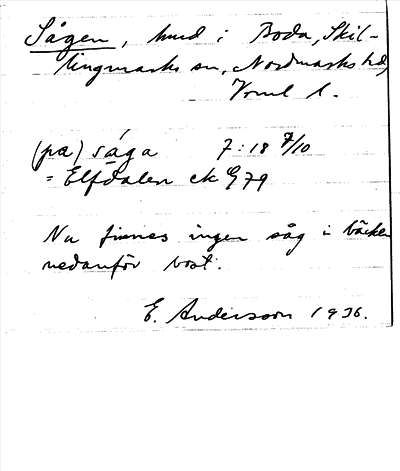 Sågen, hmd i Boda, Skil-
lingmarks sn, Nordmarks hd,
Vrml l.
(pa) såga 7:18 7/10
= Elfdalen ek G 79
Nu finnes ingen såg i bäcken
nedanför bost.
E. Andersson 1936.